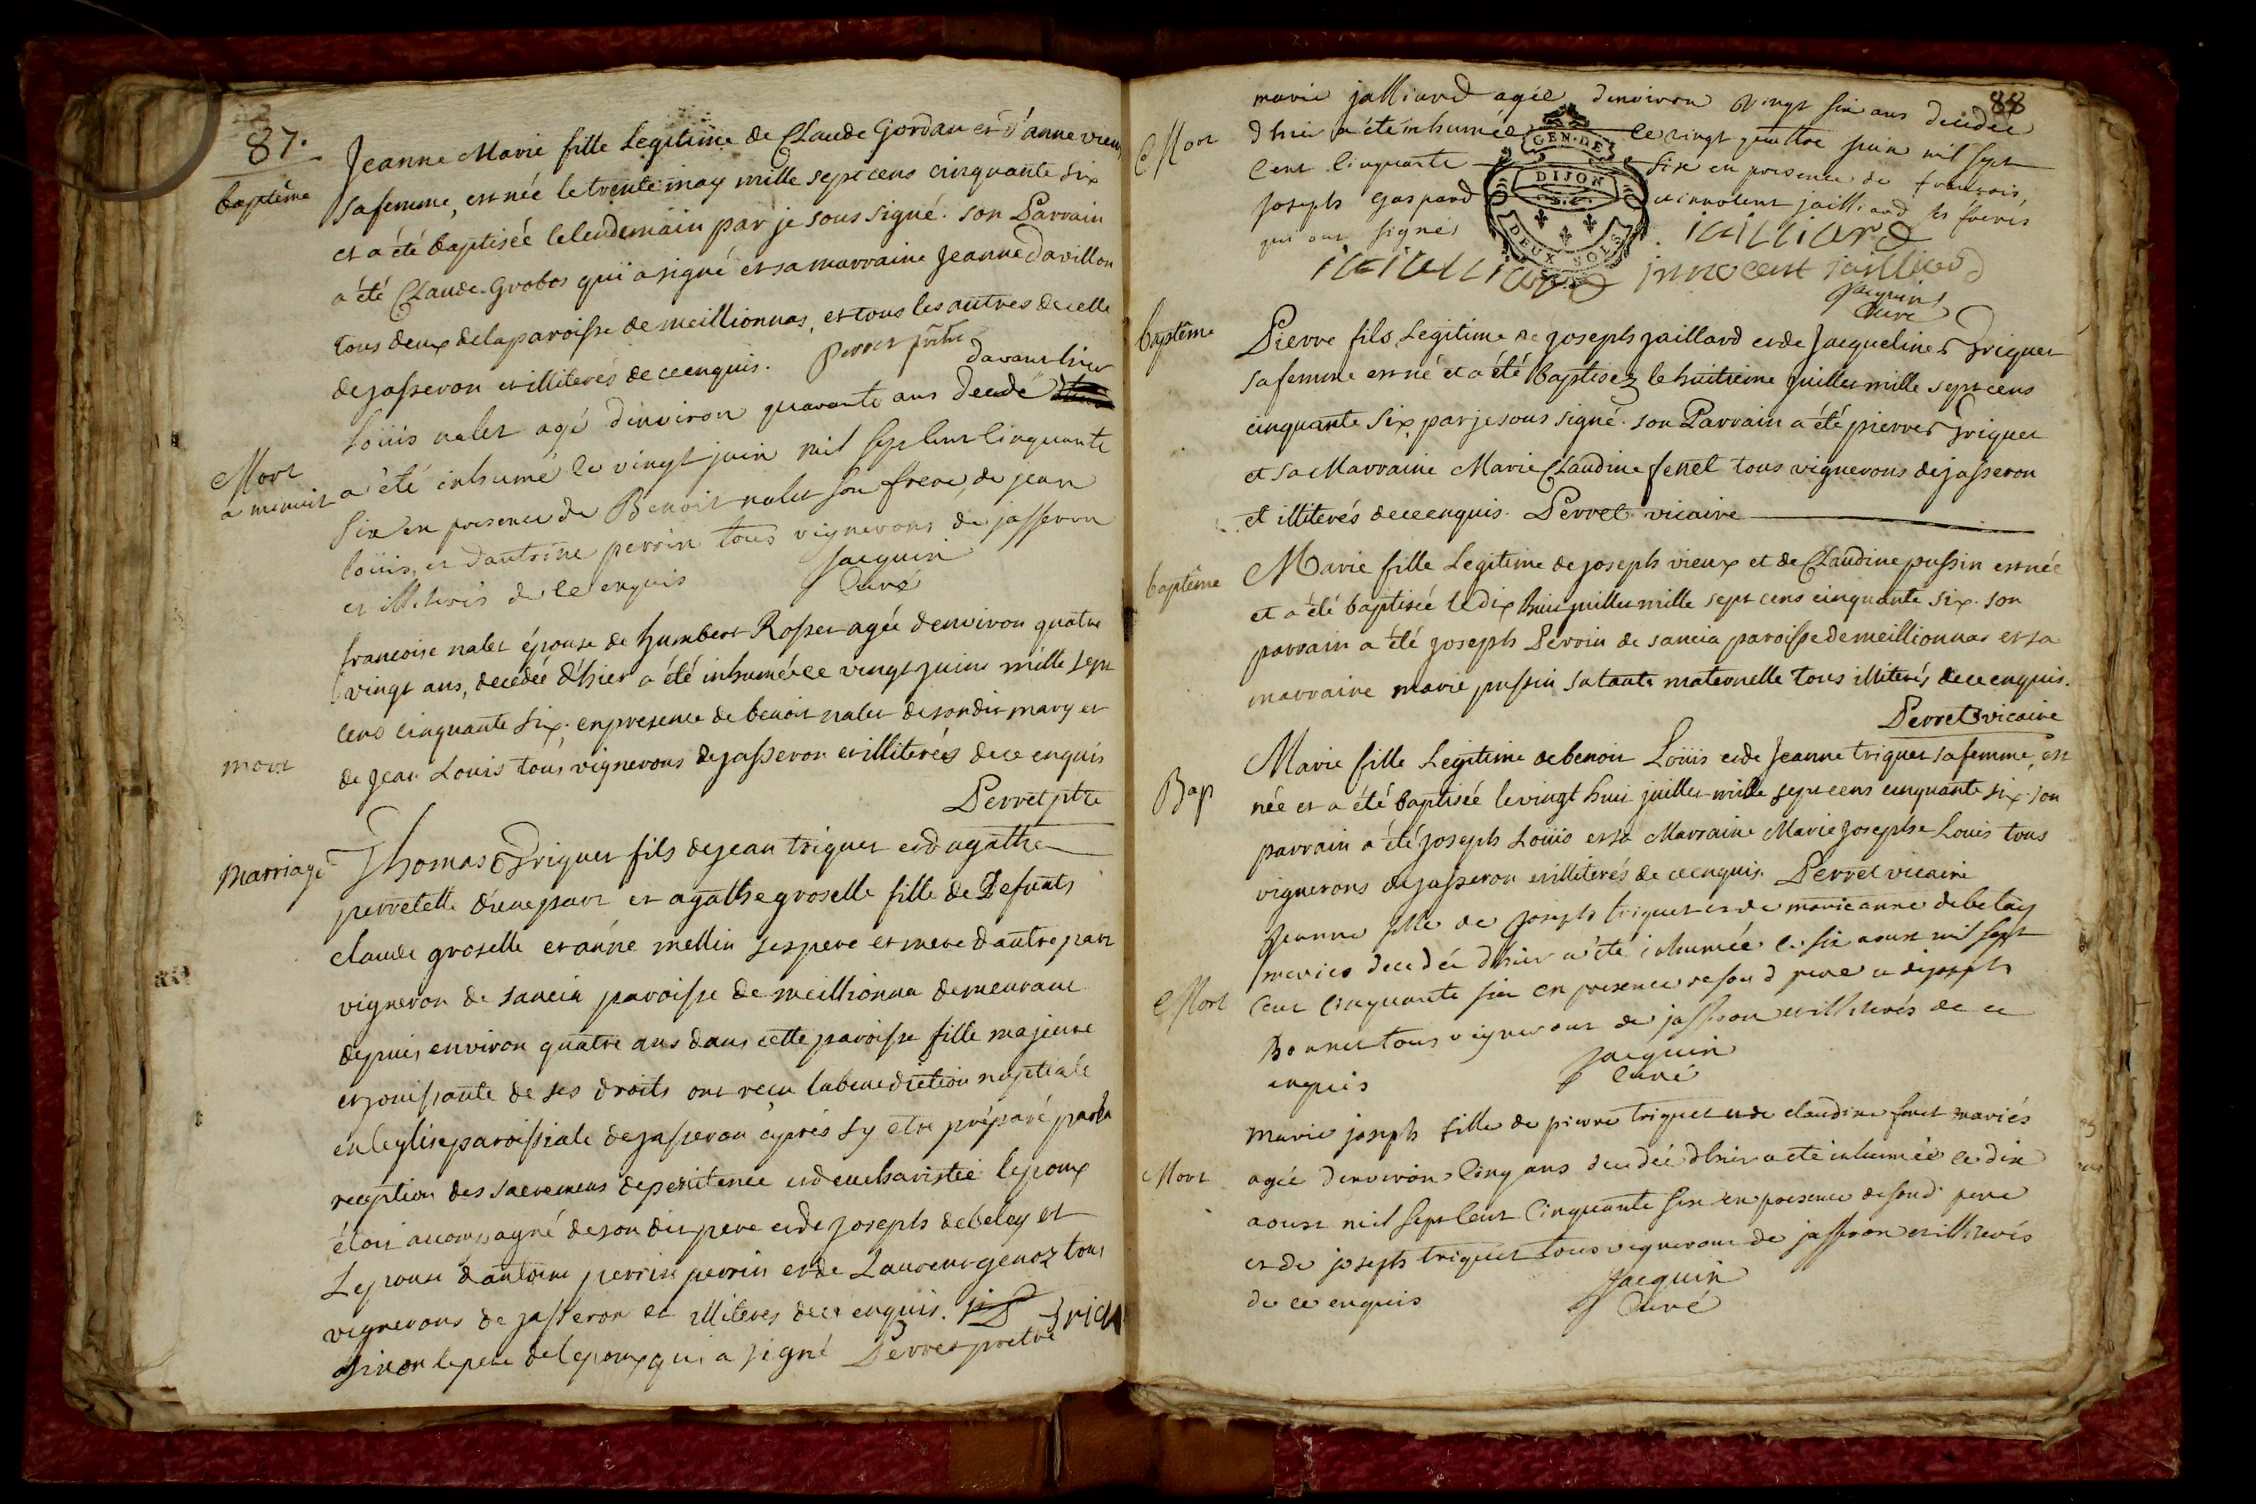 87.
baptême
Jeanne Marie fille Legitime de Claude Gordan et d'anne vieux
sa femme, est née le trente may mille sept cens cinquante six
et a été baptisée le lendemain par je sous signé. son Parrain
a été Claude Grobos qui a signé et sa marraine Jeanne Davillon
tous deux de la paroisse de meillionnas, et tous les autres de celle
de jasseron et illiterés de ce enquis. Perret prêtre
davant hier
Mort
a menuit
Loüis nalet agé denviron quarante ans decedé
a été inhumé le vingt juin mil sept cent cinquante
six en presence de Benoit nalet son frere, de jean
loüis, et dantoine perrin tous vignerons de jasseron
et illiterés de ce enquis Jacquin
Curé
mort
francoise nalet épouse de humbert Rosset agée denviron quatre
vingt ans, decedée d'hier a été inhumée le vingt juin mille sept
cens cinquante six. en presence de benoit nalet de son dit mary et
de Jean Louis tous vignerons de jasseron et illiterés de ce enquis
Perret ptre
Marriage
Thomas Triquet fils de jean triquet et d'agathe
perretelle d'une part et agathe groselle fille de Defunts
claude groselle et anne mellin ses pere et mere d'autre part
vigneron de sancia paroisse de meillionna demeurant
depuis environ quatre ans dans cette paroisse fille majeure
et jouissante de ses droits ont reçu la benediction nuptiale
en leglise paroissiale de jasseron après sy etre préparé par la
reception des sacremens de penitence et d'eucharistie lepoux
étoit accompagné de son dit pere et de joseph debeley et
Lepouse d'antoine perrin perrin et de Laurent genoz tous
vignerons de jasseron et illiteres de ce enquis.
sinon le pere de lepoux qui a signé Perret pretre
88
Mort
marie jalliard agée denviron vingt six ans decedée
dhier a été inhumée le vingt quattre juin mil sept
cent cinquante six en presence de francois,
joseph gaspard et innocent jailliard ses freres
qui ont signés
GEN. DE
DIJON
DEUX SOLS
iailliard
iailliard innocent jailliard
Jacquin
Curé
baptême
Pierre fils Legitime de joseph jaillard et de Jacqueline Triquet
sa femme est né et a été baptisez le huitieme juillet mille sept cens
cinquante six par je sous signé. son Parrain a été pierre Triquet
et sa Marraine Marie Claudine fenel tous vignerons de jasseron
et illiterés de ce enquis. Perret vicaire
baptême
Marie fille Legitime de joseph vieux et de Claudine pussin est née
et a été baptisée le dix huit juillet mille sept cens cinquante six. son
parrain a été joseph Perrin de sancia paroisse de meillionnas et sa
marraine marie pussin sa tante maternelle tous illiterés de ce enquis.
Perret vicaire
Bap
Marie fille Legitime de benoit Loüis et de Jeanne triquet sa femme, est
née et a été baptisée le vingt huit juillet mille sept cens cinquante six. son
parrain a été joseph Loüis et sa Marraine Marie Josephe Louis tous
vignerons de jasseron et illiterés de ce enquis. Perret vicaire
Mort
Jeanne fille de joseph triquet et de marie anne debeley
mariés decedée dhier a été inhumée le six aoust mil sept
cent cinquante six en presence de son d pere et de joseph
Bonnet tous vignerons de jasseron et illiterés de ce
enquis Jacquin
Curé
Mort
Marie joseph fille de pierre triquet et de claudine fenet mariés
agée denviron cinq ans decedée dhier a été inhumée le dix
aoust mil sept cent cinquante six en presence de son d pere
et de joseph triquet tous vignerons de jasseron et illiterés
de ce enquis Jacquin
Curé